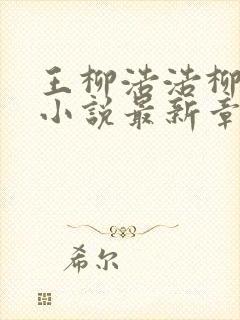 王柳浩浩柳
小说最新章
希尔